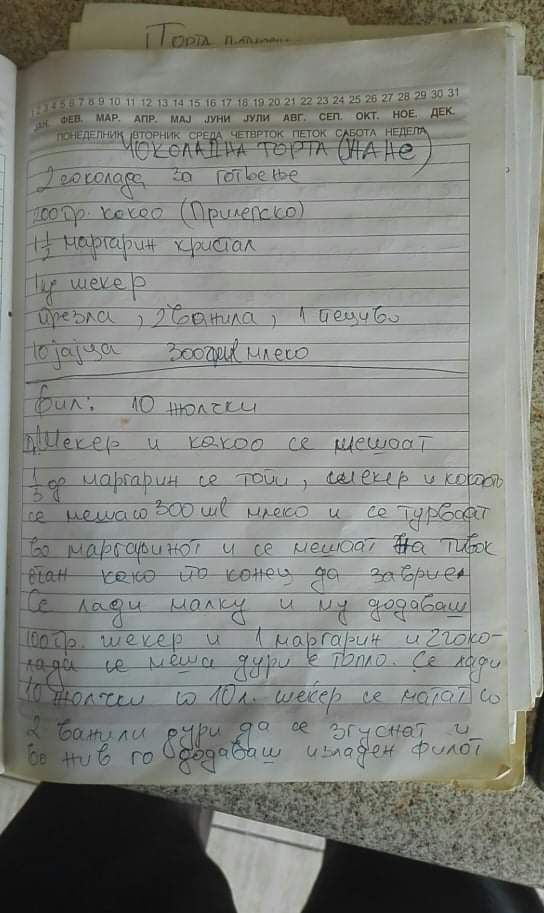 Торта
1 2 3 4 5 6 7 8 9 10 11 12 13 14 15 16 17 18 19 20 21 22 23 24 25 26 27 28 29 30 31
ЈАН. ФЕВ. МАР. АПР. МАЈ ЈУНИ ЈУЛИ АВГ. СЕП. ОКТ. НОЕ. ДЕК.
ПОНЕДЕЛНИК ВТОРНИК СРЕДА ЧЕТВРТОК ПЕТОК САБОТА НЕДЕЛА
ЧОКОЛАДНА ТОРТА (НАНЕ)
2 чоколада за готвење
200 гр. какоо (Прилепско)
1 1/2 маргарин кристал
1 кг шекер
презла, 2 ванила, 1 пециво
10 јајца 300 мл млеко
Фил: 10 жолчки
Шекер и какоо се мешаат
1/3 од маргарин се топи, шекер и какоото
се меша со 300 мл млеко и се турваат
во маргаринот и се мешаат на тивок
оган како по конец да заврие.
Се лади малку и му додаваш
100 гр. шекер и 1 маргарин и 2 чоко-
лада се меша дури е топло. Се лади
10 жолчки со 10 л. шекер се матат со
2 ванили дури да се згуснат и
во нив го додаваш изладен филот